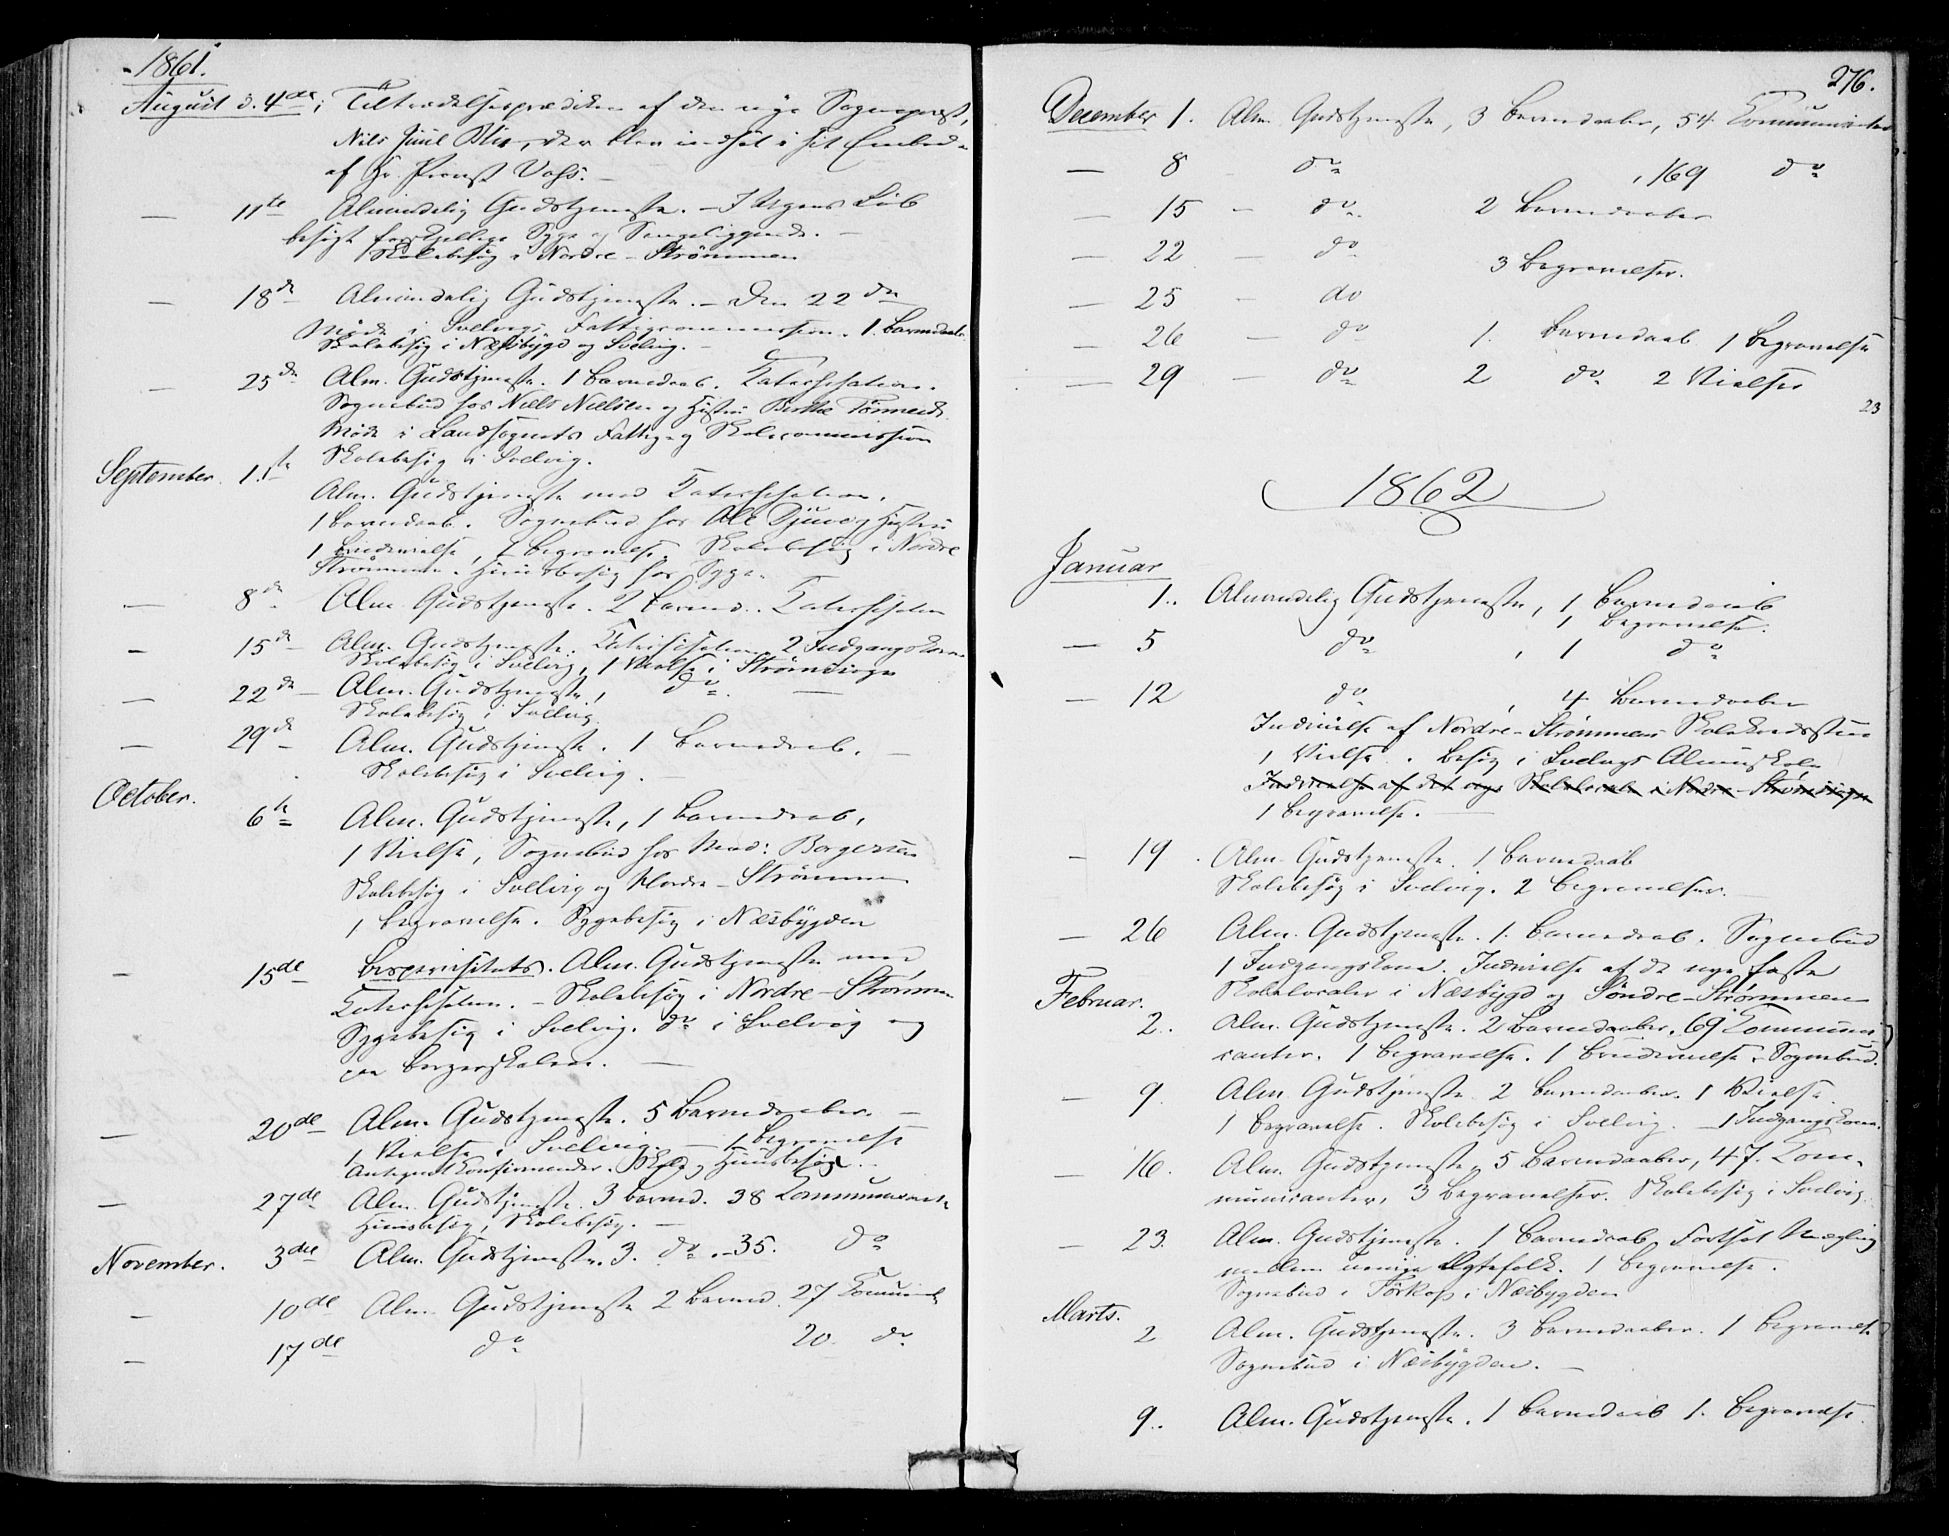 1861.
August d. 4de, Tiltrædelsesprædiken af den nye Sognepræst,
Nils Juul, der blev indsat i sit Embed
af Hr. Provst Vahs. —
— 11te Almindelig Gudstjeneste. — I Ugens Løb
besøgt forskjellige Syge og Sengeliggende. —
Skolebesøg i Nordre-Strømmen
— 18de Almindelig Gudstjeneste. — Den 22de
Møde i Svelvigs Fattigcommission. 1. Barnedaab.
Skolebesøg i Næsbygd og Svelvig. —
— 25de Alm. Gudstjeneste. 1 Barnedaab. Katechisation.
Sognebud hos Niels Nielsen og Hustru Birthe
Møde i Landsognets Fattig- og Skolecommission
Skolebesøg i Svelvig.
September 1.te
Alm. Gudstjeneste med Katechisation.
1 Barnedaab. Sognebud hos Ole og Hustru
1 Brudevielse, 1 Begravelse. Skolebesøg i Nordre
Strømmen. Huusbesøg hos Syge.
— 8de Alm. Gudstjeneste. 2 Barned. Katechisation
— 15de Alm. Gudstjeneste. Katechisation, 2 Indgangskoner
Skolebesøg i Svelvig, 1 Vielse i Strømsogn
— 22de — Alm. Gudstjeneste, do —
Skolebesøg i Svelvig.
— 29de Alm. Gudstjeneste. 1 Barnedaab. —
Skolebesøg i Svelvig. —
October.
6te Alm. Gudstjeneste, 1 Barnedaab,
1 Vielse, Sognebud hos Mad: Borgersen
Skolebesøg i Svelvig og Nordre-Strømmen
1 Begravelse. Sygebesøg i Næsbygden
— 15de Bispevisitats. Alm. Gudstjeneste med
Katechisation. — Skolebesøg i Nordre-Strømmen
Sygebesøg i Svelvig. do i Svelvig og
paa Bergerskolen. —
— 20de Alm. Gudstjeneste. 5 Barnedaaber. —
1 Vielse i Svelvig. — 1 Begravelse
Antegnet Konfirmander. Skole og Huusbesøg. —
— 27de Alm. Gudstjeneste. 3 Barned. 38 Kommunicanter
Huusbesøg, Skolebesøg. —
November. 3die Alm. Gudstjeneste. 3. do. — 35. do
— 10de Alm. Gudstjeneste 2 Barned. 27 Kommunic.
— 17de do 20. do
276.
December 1. Alm. Gudstjeneste, 3 Barnedaaber, 54 Kommunicanter
— 8 do , 169 do
— 15 — do 2 Barnedaaber
— 22 — do 3 Begravelser.
— 25 — do
— 26 — do 1. Barnedaab 1 Begravelse
— 29 — do 2 do 2 Vielser
23
1862
Januar
1. Almindelig Gudstjeneste, 1 Barnedaab
1 Begravelse.
— 5 do , 1 do
— 12 do , 4 Barnedaaber
Indvielse af Nordre-Strømmens Skolekredsstue
1 Vielse. Besøg i Svelvigs Almueskole
Indvielse af det nye Skolelocale i Nordre-Strømsogn
1 Begravelse. —
— 19. Alm. Gudstjeneste. 1 Barnedaab
Skolebesøg i Svelvig. 2 Begravelser. —
— 26 Alm. Gudstjeneste. 1. Barnedaab. Sognebud
1 Indgangskone. Indvielse af de nye faste
Skolelocaler i Næsbygd og Søndre-Strømmen
Februar.
2. Alm. Gudstjeneste. 2 Barnedaaber. 69 Kommuni-
canter. 1 Begravelse. 1 Brudevielse. Sognebud.
— 9. Alm. Gudstjeneste 2 Barnedaaber. 1 Vielse
1 Begravelse. Skolebesøg i Svelvig. — 1 Indgangskone.
— 16. Alm. Gudstjeneste, 5 Barnedaaber, 47. Kom-
municanter, 3 Begravelser. Skolebesøg i Svelvig.
— 23. Alm. Gudstjeneste. 1 Barnedaab. Forsøgt Mægling
mellem uenige Ægtefolk. 1 Begravelse.
Sognebud i i Næsbygden
Marts.
2 Alm. Gudstjeneste. 3 Barnedaaber. 1 Begravelse
Sognebud i Næsbygden. —
9. Alm. Gudstjeneste. 1 Barnedaab 1. Begravelse.